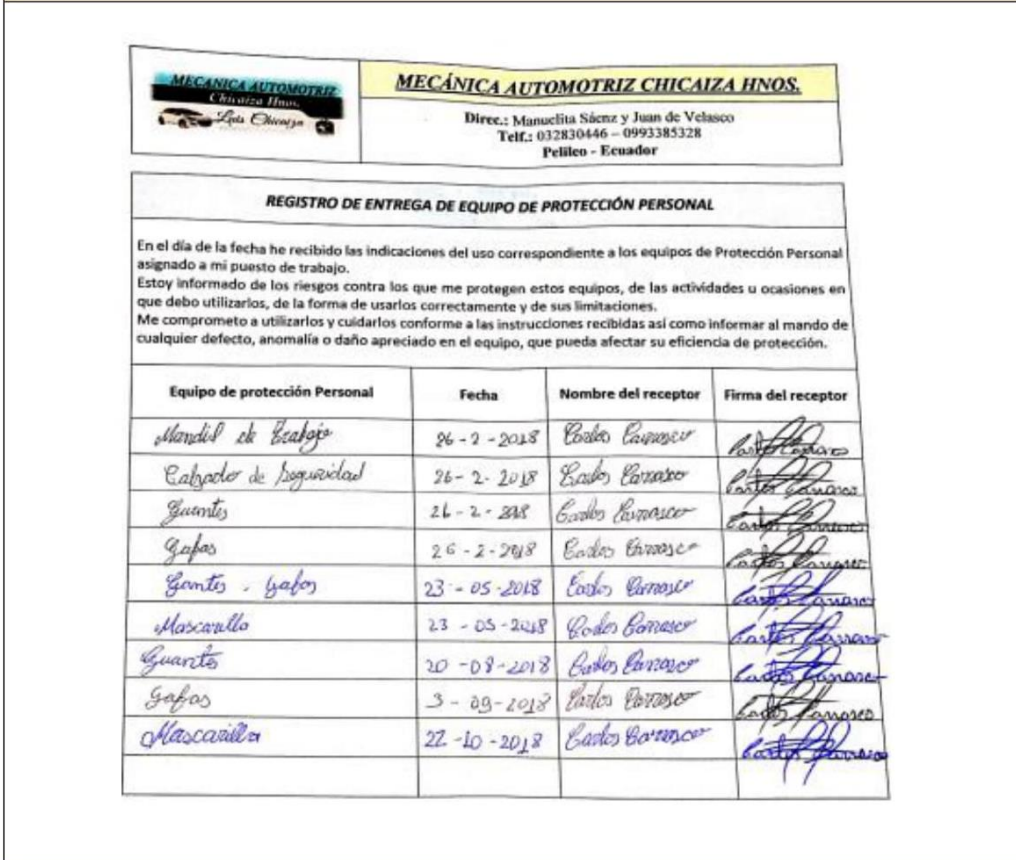 MECANICA AUTOMOTRIZ
Chicaiza Hnos.
Luis Chicaiza
MECÁNICA AUTOMOTRIZ CHICAIZA HNOS.
Direc.: Manuelita Sáenz y Juan de Velasco
Telf.: 032830446 – 0993385328
Pelileo - Ecuador
REGISTRO DE ENTREGA DE EQUIPO DE PROTECCIÓN PERSONAL
En el día de la fecha he recibido las indicaciones del uso correspondiente a los equipos de Protección Personal
asignado a mi puesto de trabajo.
Estoy informado de los riesgos contra los que me protegen estos equipos, de las actividades u ocasiones en
que debo utilizarlos, de la forma de usarlos correctamente y de sus limitaciones.
Me comprometo a utilizarlos y cuidarlos conforme a las instrucciones recibidas así como informar al mando de
cualquier defecto, anomalía o daño apreciado en el equipo, que pueda afectar su eficiencia de protección.
Equipo de protección Personal Fecha Nombre del receptor Firma del receptor
Mandil de trabajo 26-2-2018 Carlos Carrasco Carlos Carrasco
Calzado de Seguridad 26-2-2018 Carlos Carrasco Carlos Carrasco
Guantes 26-2-2018 Carlos Carrasco Carlos Carrasco
Gafas 26-2-2018 Carlos Carrasco Carlos Carrasco
Gantes - Gafas 23-05-2018 Carlos Carrasco Carlos Carrasco
Mascarilla 23-05-2018 Carlos Carrasco Carlos Carrasco
Guantes 20-08-2018 Carlos Carrasco Carlos Carrasco
Gafas 3-09-2018 Carlos Carrasco Carlos Carrasco
Mascarilla 22-10-2018 Carlos Carrasco Carlos Carrasco